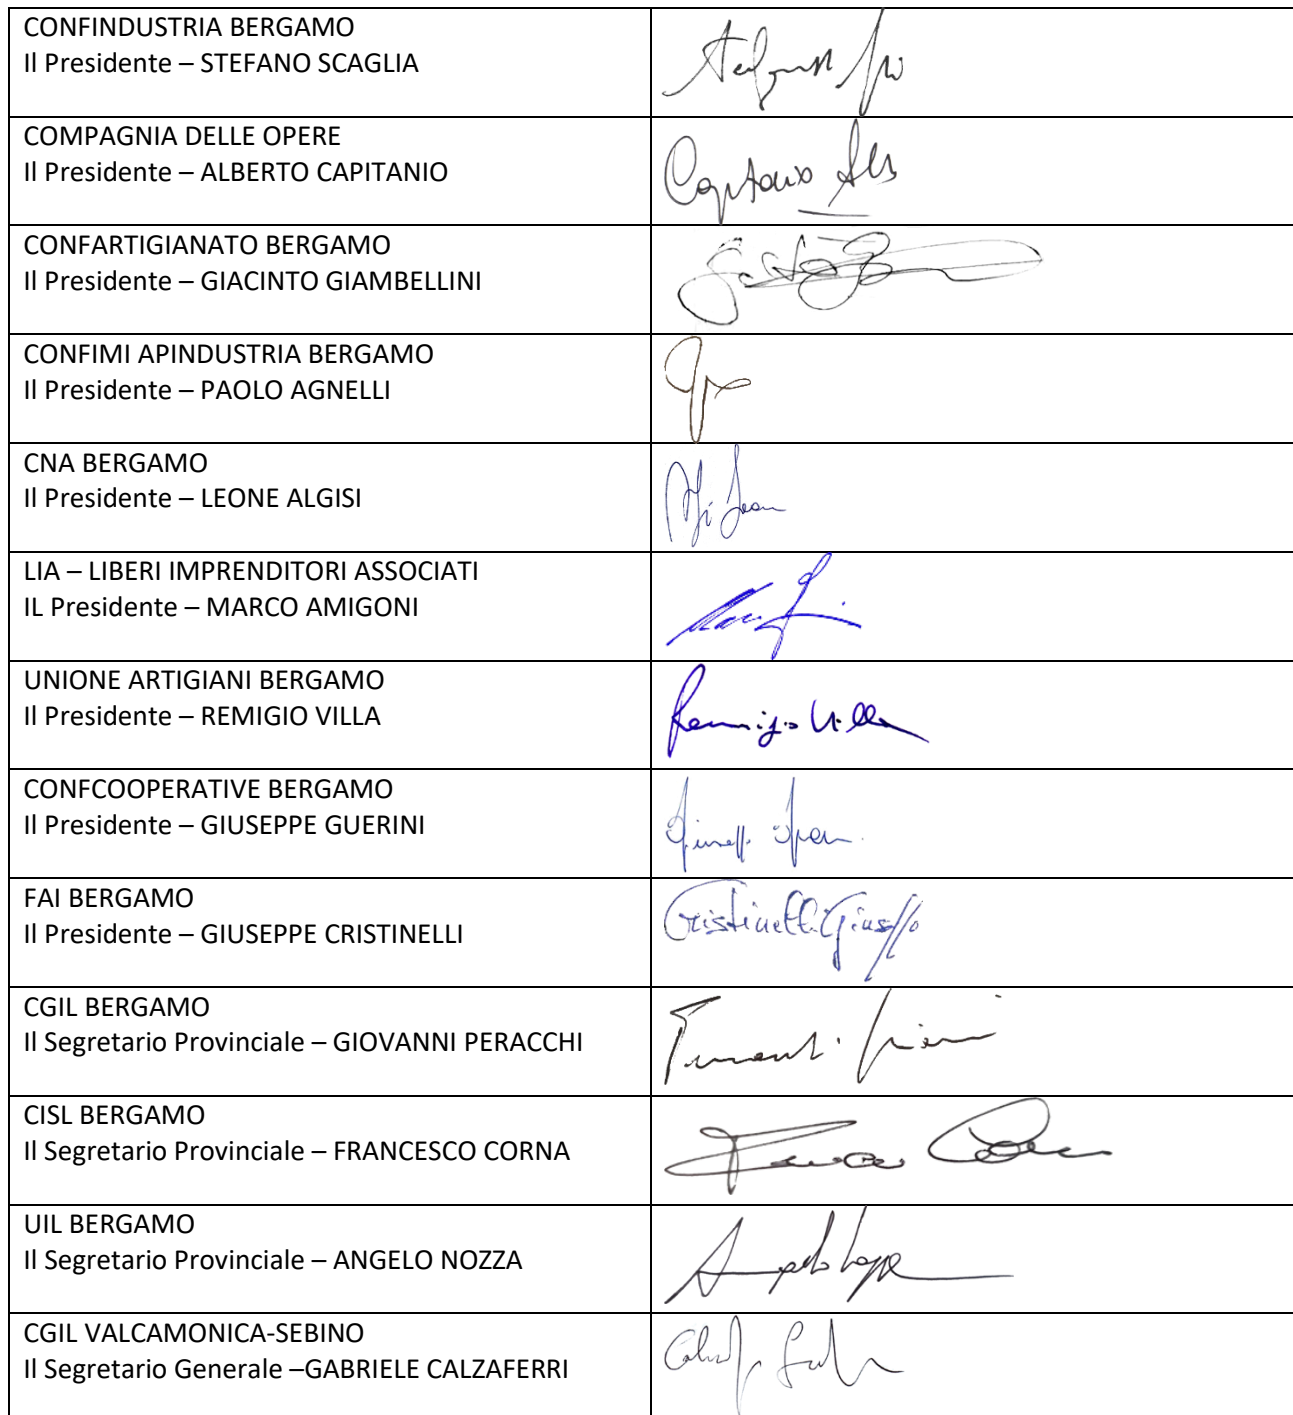 CONFINDUSTRIA BERGAMO
Il Presidente – STEFANO SCAGLIA
COMPAGNIA DELLE OPERE
Il Presidente – ALBERTO CAPITANIO
CONFARTIGIANATO BERGAMO
Il Presidente – GIACINTO GIAMBELLINI
CONFIMI APINDUSTRIA BERGAMO
Il Presidente – PAOLO AGNELLI
CNA BERGAMO
Il Presidente – LEONE ALGISI
LIA – LIBERI IMPRENDITORI ASSOCIATI
IL Presidente – MARCO AMIGONI
UNIONE ARTIGIANI BERGAMO
Il Presidente – REMIGIO VILLA
Remigio Villa
CONFCOOPERATIVE BERGAMO
Il Presidente – GIUSEPPE GUERINI
FAI BERGAMO
Il Presidente – GIUSEPPE CRISTINELLI
Cristinelli Giuseppe
CGIL BERGAMO
Il Segretario Provinciale – GIOVANNI PERACCHI
CISL BERGAMO
Il Segretario Provinciale – FRANCESCO CORNA
UIL BERGAMO
Il Segretario Provinciale – ANGELO NOZZA
CGIL VALCAMONICA-SEBINO
Il Segretario Generale –GABRIELE CALZAFERRI